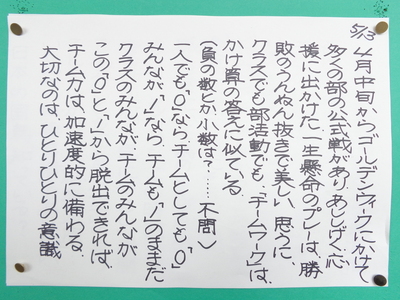 5/13
4月中旬からゴールデンウィークにかけて
多くの部の公式戦があり、あじげく応
援に出かけた。一生懸命のプレーは、勝
敗のうんぬん抜きで美しい。思うに、
クラスでも部活動でも、“チームワーク”は、
かけ算の答えに似ている。
(負の数とか小数は?……不問。)
一人でも、“0”ならチームとしても“0”
みんなが、“1”なら、チームも“1”のままだ
クラスのみんなが、チームのみんなが
この“0”と“1”から脱出できれば、
チーム力は、加速度的に備わる。
大切なのは、ひとりひとりの意識